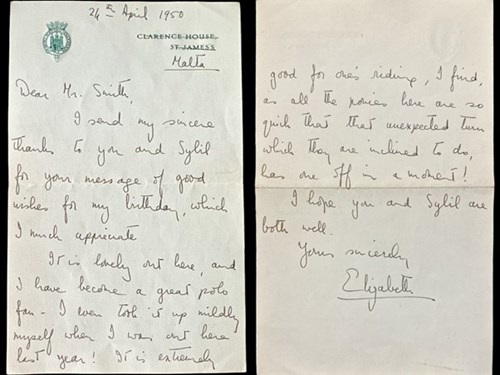 24th April 1950
CLARENCE HOUSE,
ST JAMES'S
Malta
Dear Mr. Smith,
I send my sincere
thanks to you and Sybil
for your message of good
wishes for my birthday, which
I much appreciate
It is lovely out here, and
I have become a great polo
fan - I even took it up mildly
myself when I was out here
last year! It is extremely
good for one's riding, I find,
as all the ponies here are so
quick that that unexpected turn
which they are inclined to do,
has one off in a moment!
I hope you and Sybil are
both well.
Yours sincerely
Elizabeth